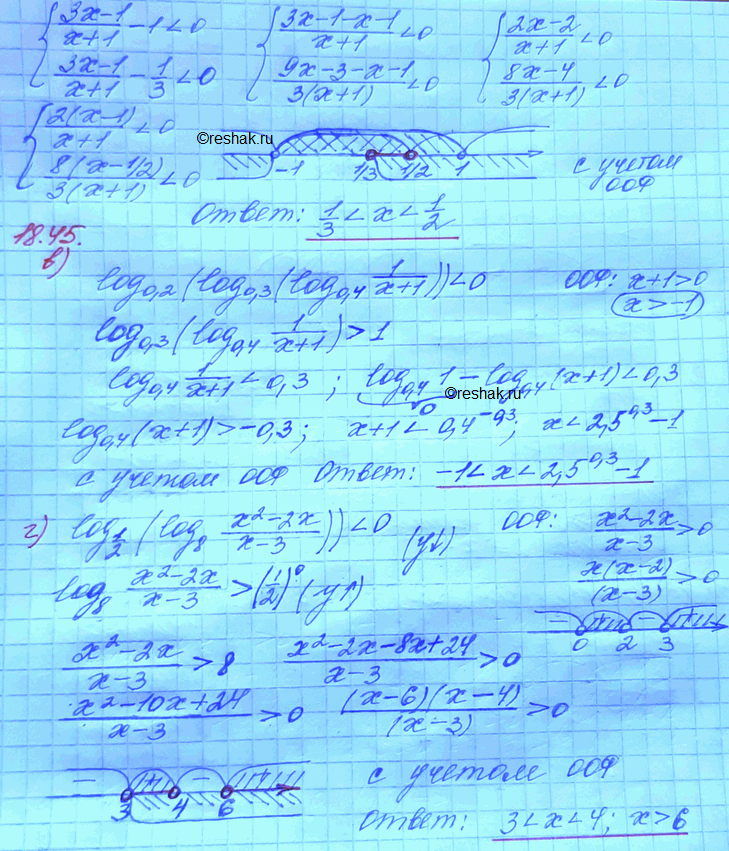 { (3x-1)/(x+1) - 1 < 0 { (3x-1-x-1)/(x+1) < 0 { (2x-2)/(x+1) < 0
{ (3x-1)/(x+1) - 1/3 < 0 { (9x-3-x-1)/(3(x+1)) < 0 { (8x-4)/(3(x+1)) < 0
{ 2(x-1)/(x+1) < 0
{ 8(x-1/2)/(3(x+1)) < 0
©reshak.ru
-1 1/3 1/2 1
с учетом ООФ
Ответ: 1/3 < x < 1/2
18.45.
в)
log₀,₂(log₀,₃(log₀,₄ 1/(x+1))) < 0 ООФ: x+1>0
x>-1
log₀,₃(log₀,₄ 1/(x+1)) > 1
log₀,₄ 1/(x+1) < 0,3 ; log₀,₄ 1 - log₀,₄(x+1) < 0,3
0
©reshak.ru
log₀,₄(x+1) > -0,3; x+1 < 0,4^(-0,3); x < 2,5^(0,3) - 1
с учетом ООФ Ответ: -1 < x < 2,5^(0,3) - 1
г) log_(1/2)(log₈ (x²-2x)/(x-3))) < 0 (y↓) ООФ: (x²-2x)/(x-3) > 0
log₈ (x²-2x)/(x-3) > (1/2)⁰ (y↑) x(x-2)/(x-3) > 0
- + - +
0 2 3
(x²-2x)/(x-3) > 8 (x²-2x-8x+24)/(x-3) > 0
(x²-10x+24)/(x-3) > 0 (x-6)(x-4)/(x-3) > 0
- + - +
3 4 6
с учетом ООФ
Ответ: 3<x<4; x>6